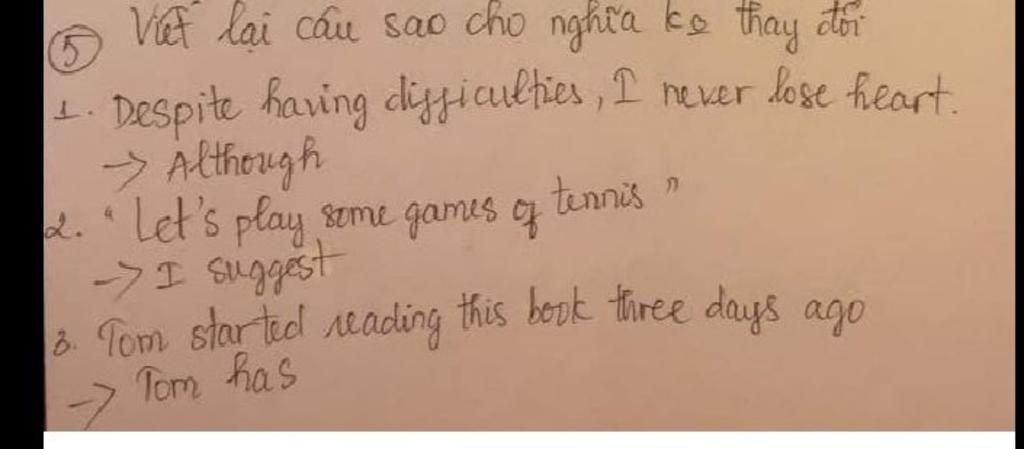 ⑤ Viết lại câu sao cho nghĩa ko thay đổi
1. Despite having difficulties, I never lose heart.
-> Although
2. "Let's play some games of tennis"
-> I suggest
3. Tom started reading this book three days ago
-> Tom has